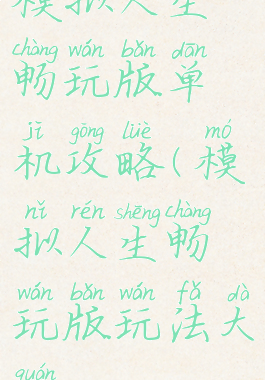 模拟人生
chàng wán bǎn dān
畅玩版单
jī gōng lüè mó
机攻略(模
nǐ rén shēng chàng
拟人生畅
wán bǎn wán fǎ dà
玩版玩法大
quán